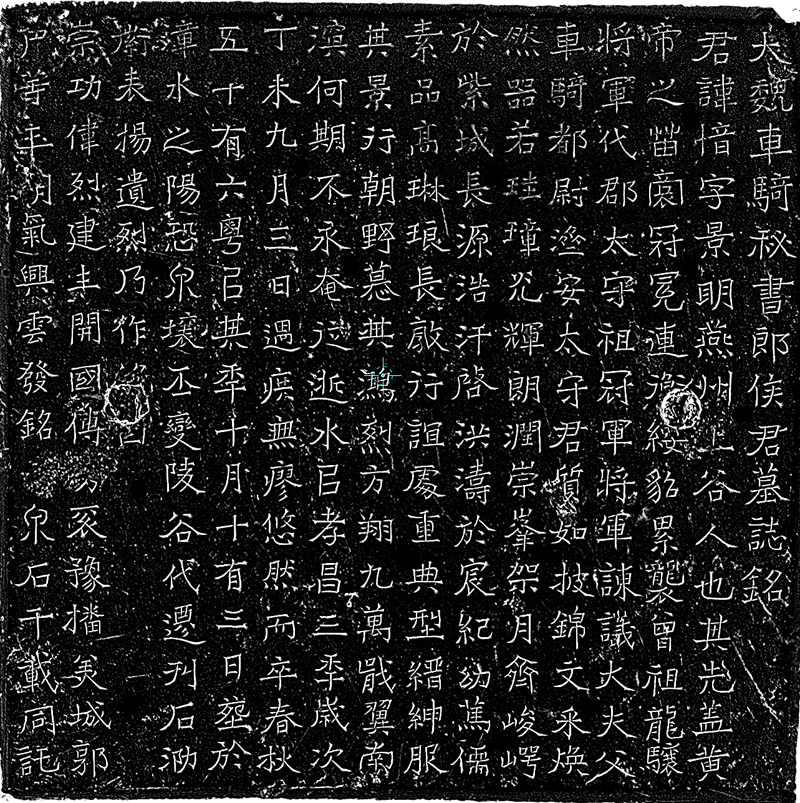 大魏車騎秘書郎侯君墓誌銘
君諱愔字景明燕州上谷人也其先蓋黃
帝之苗裔冠冕連綿綬貂累襲曾祖龍驤
將軍代郡太守祖冠軍將軍諫議大夫父
車騎都尉遼安太守君質如披錦文采煥
然器若珪璋光輝朗潤崇峯架月齊峻崿
於紫城長源浩汗啓洪濤於宸紀幼蔫儒
素品高琳琅長敲行誼處重典型縉紳服
其景行朝野慕其鴻烈方翔九萬戢翼南
濱何期不永奄從逝水㠯孝昌三秊歲次
丁未九月三日遇疾無瘳悠然而卒春秋
五十有六粵㠯其秊十月十有三日塟於
漳水之陽恐泉壤丕變陵谷代遷刊石泐
銜表揚遺烈乃作銘曰
崇功偉烈建丰開國傳 豕豫播美城郭
尸善 氣興雲發銘 泉石千載同託